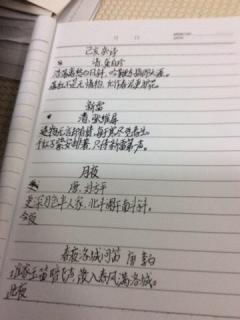 己亥杂诗
清 龚自珍
浩荡离愁白日斜，吟鞭东指即天涯。
落红不是无情物，化作春泥更护花。
新雷
清 张维屏
造物无言却有情，每于寒尽觉春生。
千红万紫安排着，只待新雷第一声。
月夜
唐 刘方平
更深月色半人家，北斗阑干南斗斜。
今夜
春夜洛城闻笛 唐 李白
谁家玉笛暗飞声，散入春风满洛城。
此夜